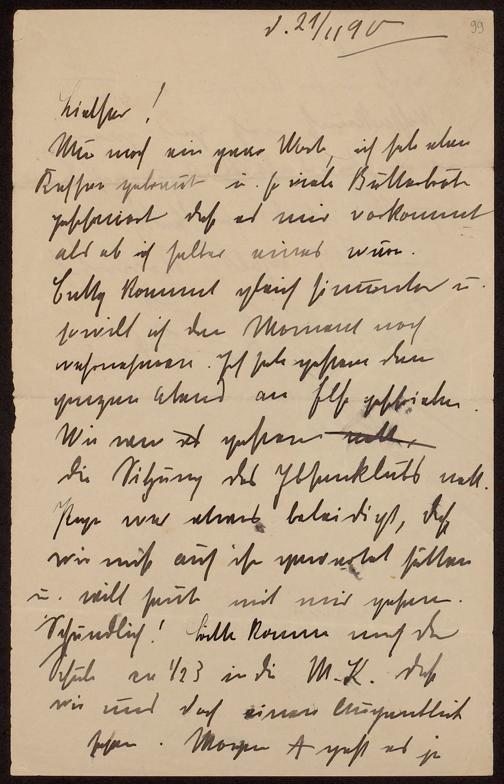 d. 21/11 90
99
Liebster!
Nur noch ein paar Worte, ich habe eben
Kaffee gebraut u. so viele Butterbrote
geschmiert daß es mir vorkommt
als ob ich selber eines wäre.
Cully kommt gleich herunter u.
so will ich den Moment noch
wahrnehmen. Ich habe gestern den
ganzen Abend an Else geschrieben.
Wie war es gestern
die Sitzung des Ibsenklubs
war etwas beleidigt, daß
wir nicht auf ihn gewartet hätten
u. will heut mit mir gehen.
Schändlich! Bitte komme nach der
Schule um 1/2 3 in die M.K. daß
wir uns doch einen Augenblick
sehen. Morgen A geht es ja